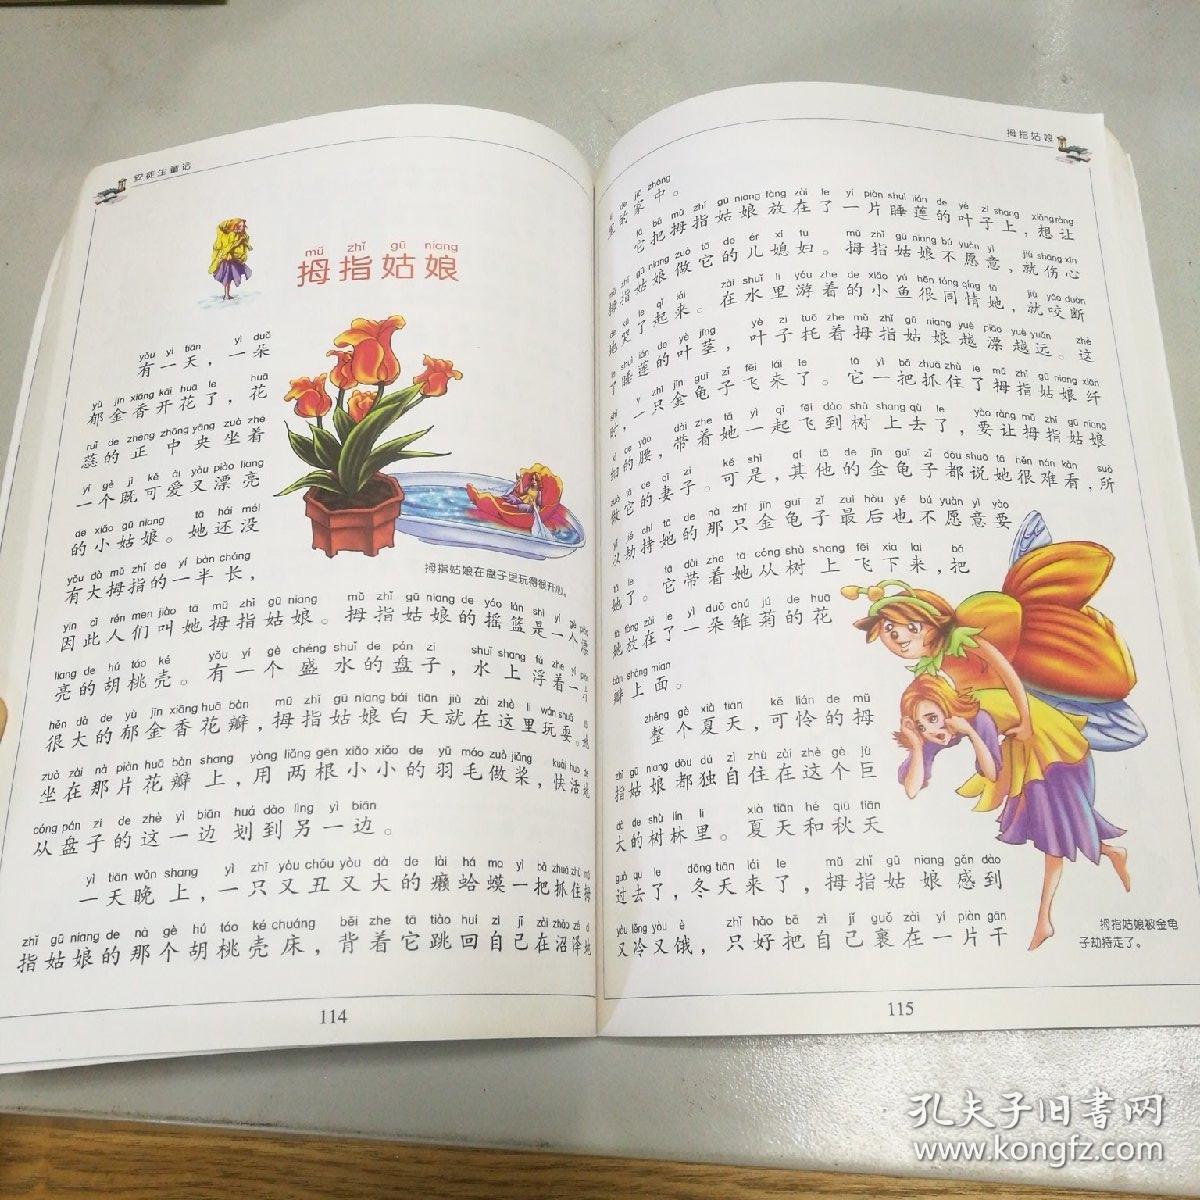 安徒生童话
mǔ zhǐ gū niang
拇指姑娘
yǒu yì tiān yì duǒ
有一天，一朵
yù jīn xiāng kāi huā le huā
郁金香开花了，花
ruǐ de zhèng zhōng yāng zuò zhe
蕊的正中央坐着
yí gè jì kě ài yòu piào liang
一个既可爱又漂亮
de xiǎo gū niang tā hái méi
的小姑娘。她还没
yǒu dà mǔ zhǐ de yí bàn cháng
有大拇指的一半长，
拇指姑娘在盘子里玩得很开心。
yīn cǐ rén men jiào tā mǔ zhǐ gū niang mǔ zhǐ gū niang de yáo lán shì yí gè piào
因此人们叫她拇指姑娘。拇指姑娘的摇篮是一个漂
liang de hú táo ké yǒu yí gè chéng shuǐ de pán zi shuǐ shang fú zhe yí piàn
亮的胡桃壳。有一个盛水的盘子，水上浮着一片
hěn dà de yù jīn xiāng huā bàn mǔ zhǐ gū niang bái tiān jiù zài zhè li wán shuǎ
很大的郁金香花瓣，拇指姑娘白天就在这里玩耍。她
zuò zài nà piàn huā bàn shang yòng liǎng gēn xiǎo xiǎo de yǔ máo zuò jiǎng kuài huo de
坐在那片花瓣上，用两根小小的羽毛做桨，快活地
cóng pán zi de zhè yì biān huá dào lìng yì biān
从盘子的这一边划到另一边。
yì tiān wǎn shang yì zhī yòu chǒu yòu dà de lài há ma yì bǎ zhuā zhù mǔ
一天晚上，一只又丑又大的癞蛤蟆一把抓住拇
zhǐ gū niang de nà gè hú táo ké chuáng bēi zhe tā tiào huí zì jǐ zài zhǎo zé dì
指姑娘的那个胡桃壳床，背着它跳回自己在沼泽地
114
拇指姑娘
de jiā zhōng
的家中。
tā bǎ mǔ zhǐ gū niang fàng zài le yí piàn shuì lián de yè zi shang xiǎng ràng
它把拇指姑娘放在了一片睡莲的叶子上，想让
mǔ zhǐ gū niang zuò tā de ér xí fu mǔ zhǐ gū niang bú yuàn yì jiù shāng xīn
拇指姑娘做它的儿媳妇。拇指姑娘不愿意，就伤心
de kū le qǐ lái zài shuǐ li yóu zhe de xiǎo yú hěn tóng qíng tā jiù yǎo duàn
地哭了起来。在水里游着的小鱼很同情她，就咬断
le shuì lián de yè jīng yè zi tuō zhe mǔ zhǐ gū niang yuè piāo yuè yuǎn zhè
了睡莲的叶茎，叶子托着拇指姑娘越漂越远。这
shí yì zhī jīn guī zǐ fēi lái le tā yì bǎ zhuā zhù le mǔ zhǐ gū niang xiān
时，一只金龟子飞来了。它一把抓住了拇指姑娘纤
xì de yāo dài zhe tā yì qǐ fēi dào shù shang qù le yào ràng mǔ zhǐ gū niang
细的腰，带着她一起飞到树上去了，要让拇指姑娘
zuò tā de qī zi kě shì qí tā de jīn guī zǐ dōu shuō tā hěn nán kàn suǒ
做它的妻子。可是，其他的金龟子都说她很难看，所
yǐ jié chí tā de nà zhī jīn guī zǐ zuì hòu yě bú yuàn yì yào
以劫持她的那只金龟子最后也不愿意要
tā le tā dài zhe tā cóng shù shang fēi xià lai bǎ
她了。它带着她从树上飞下来，把
tā fàng zài le yì duǒ chú jú de huā
她放在了一朵雏菊的花
bàn shàng mian
瓣上面。
zhěng gè xià tiān kě lián de mǔ
整个夏天，可怜的拇
zhǐ gū niang dōu dú zì zhù zài zhè gè jù
指姑娘都独自住在这个巨
dà de shù lín li xià tiān hé qiū tiān
大的树林里。夏天和秋天
guò qu le dōng tiān lái le mǔ zhǐ gū niang gǎn dào
过去了，冬天来了，拇指姑娘感到
yòu lěng yòu è zhǐ hǎo bǎ zì jǐ guǒ zài yí piàn gān
又冷又饿，只好把自己裹在一片干
拇指姑娘被金龟
子劫持走了。
115
孔夫子旧书网
www.kongfz.com